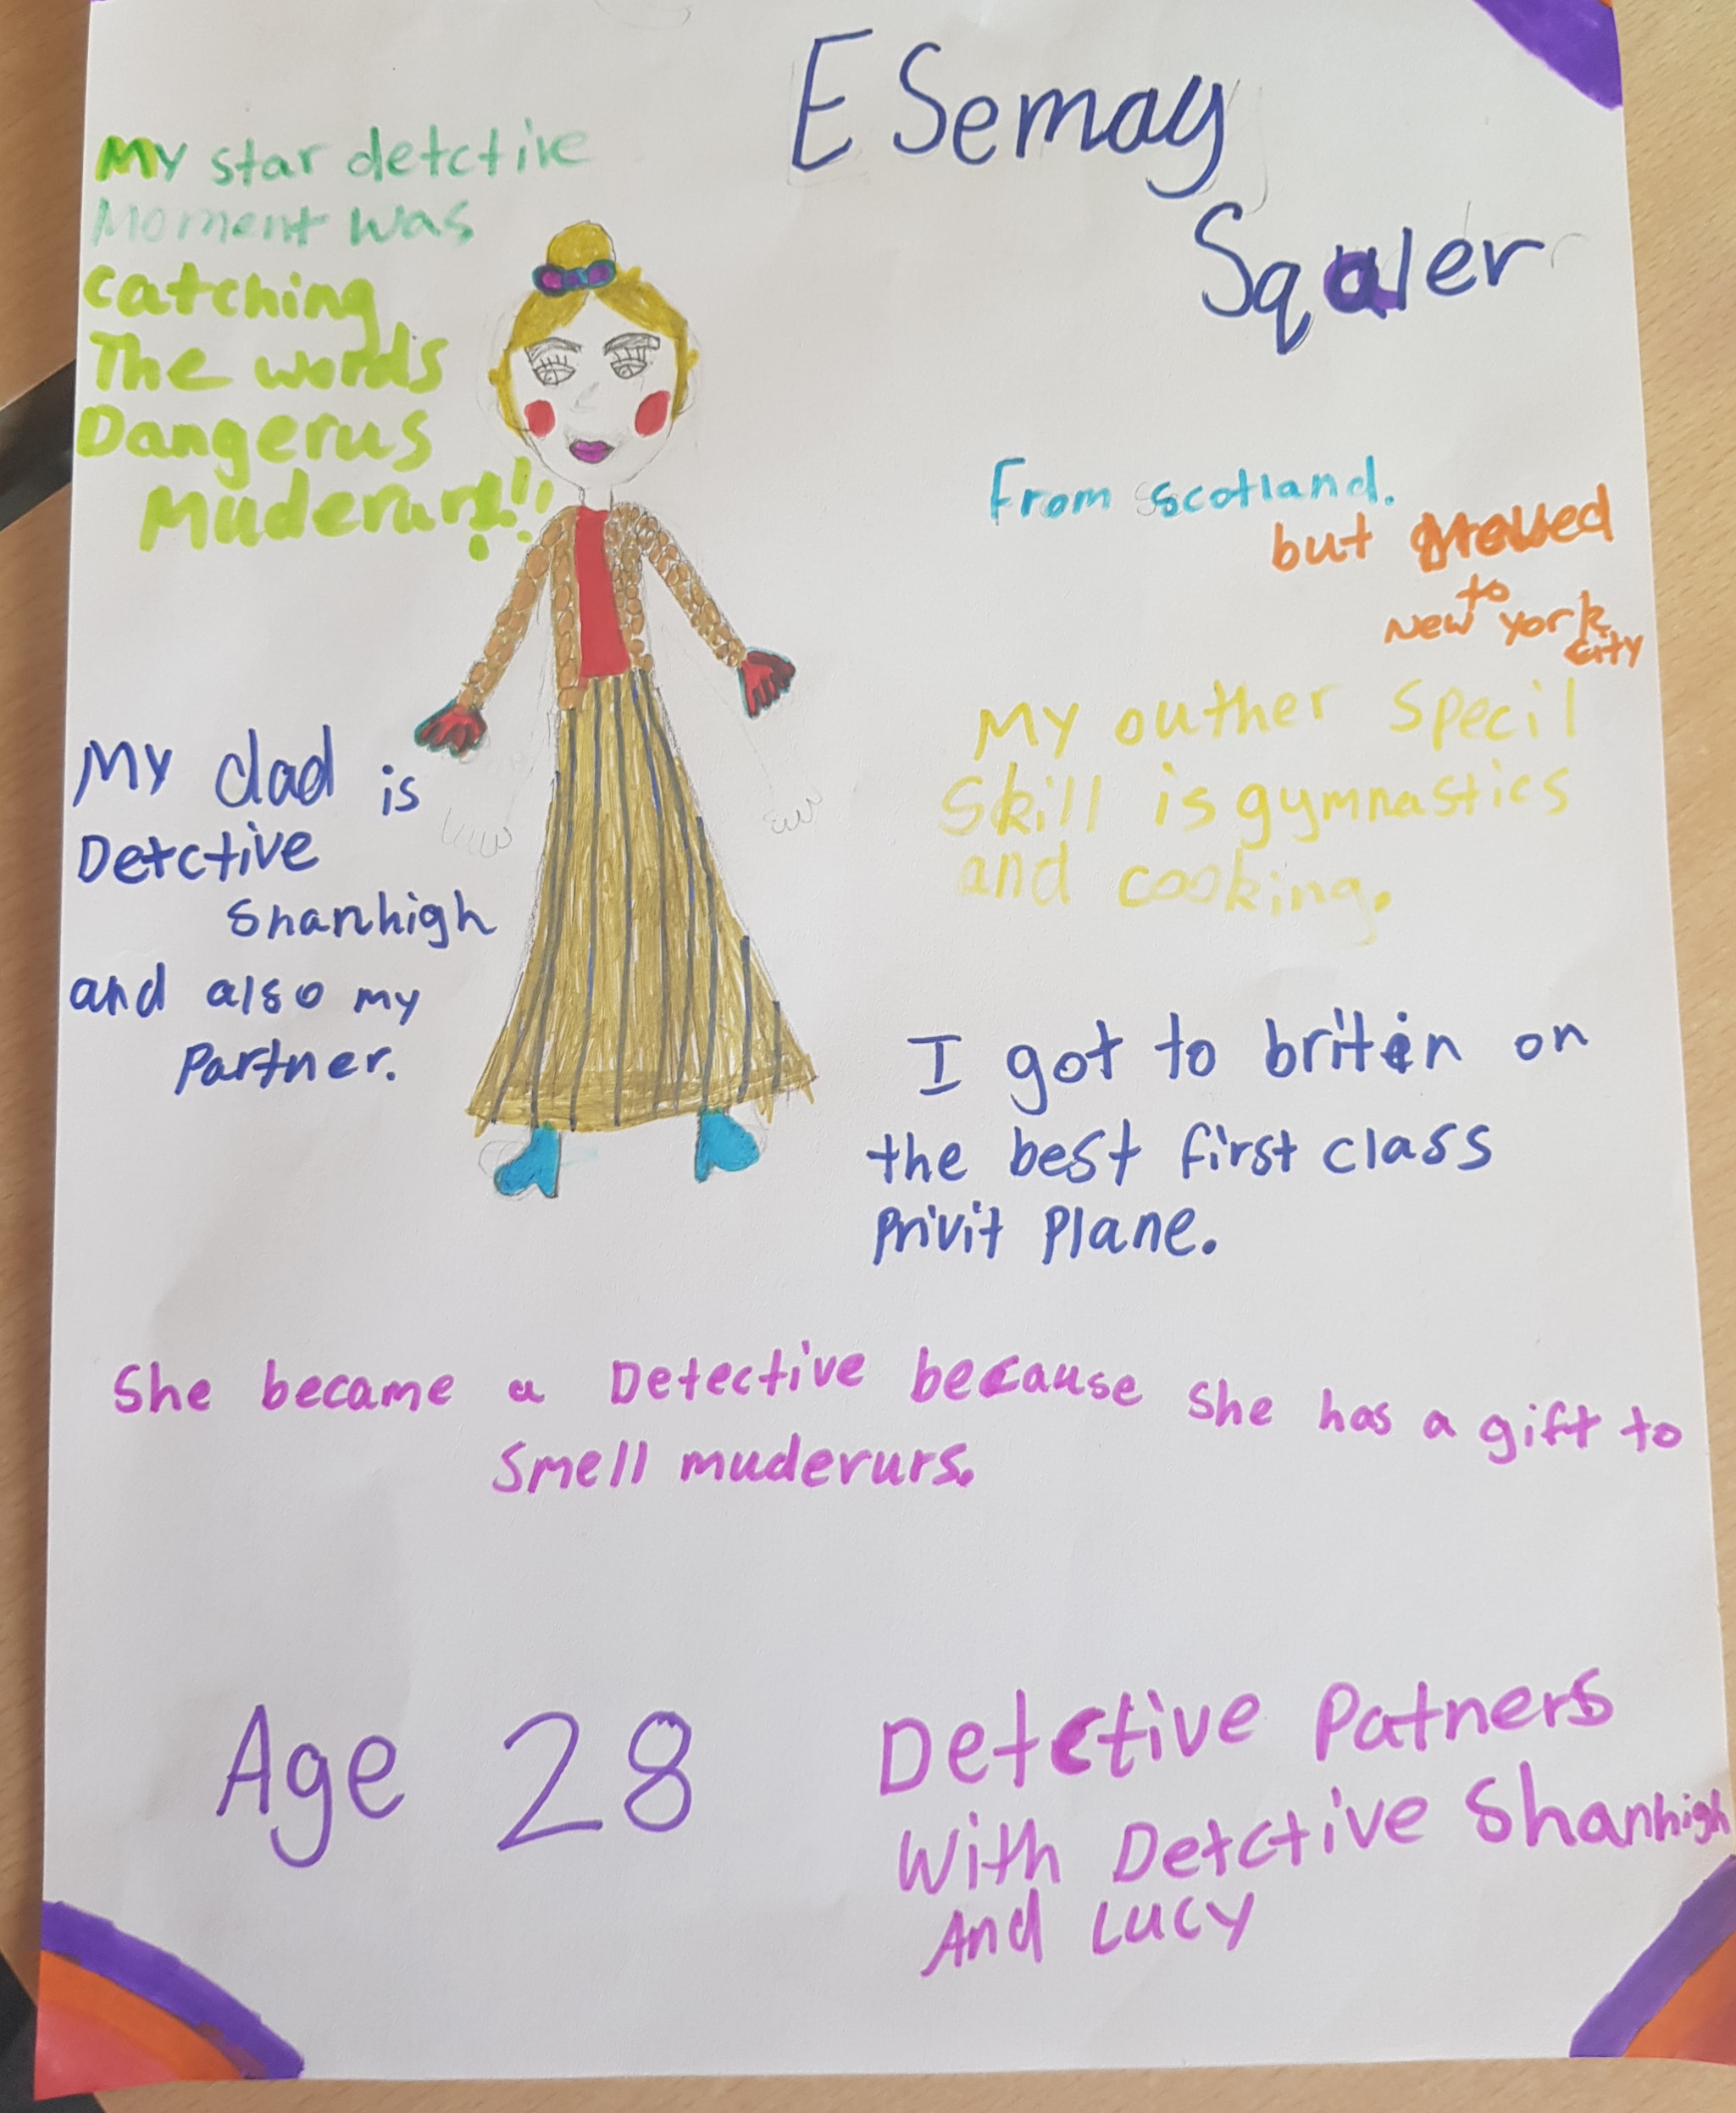 ESemay
Sqaler
My star detctive
Moment was
catching
The words
Dangerus
Muderurs!!!
From scotland.
but moved
to
New York
city
My outher specil
skill is gymnastics
and cooking.
My dad is
Detctive
Shanhigh
and also my
Partner.
I got to briten on
the best first class
Privit Plane.
She became a Detective because She has a gift to
Smell muderurs.
Age 28
Detctive Patners
With Detctive Shanhigh
And Lucy